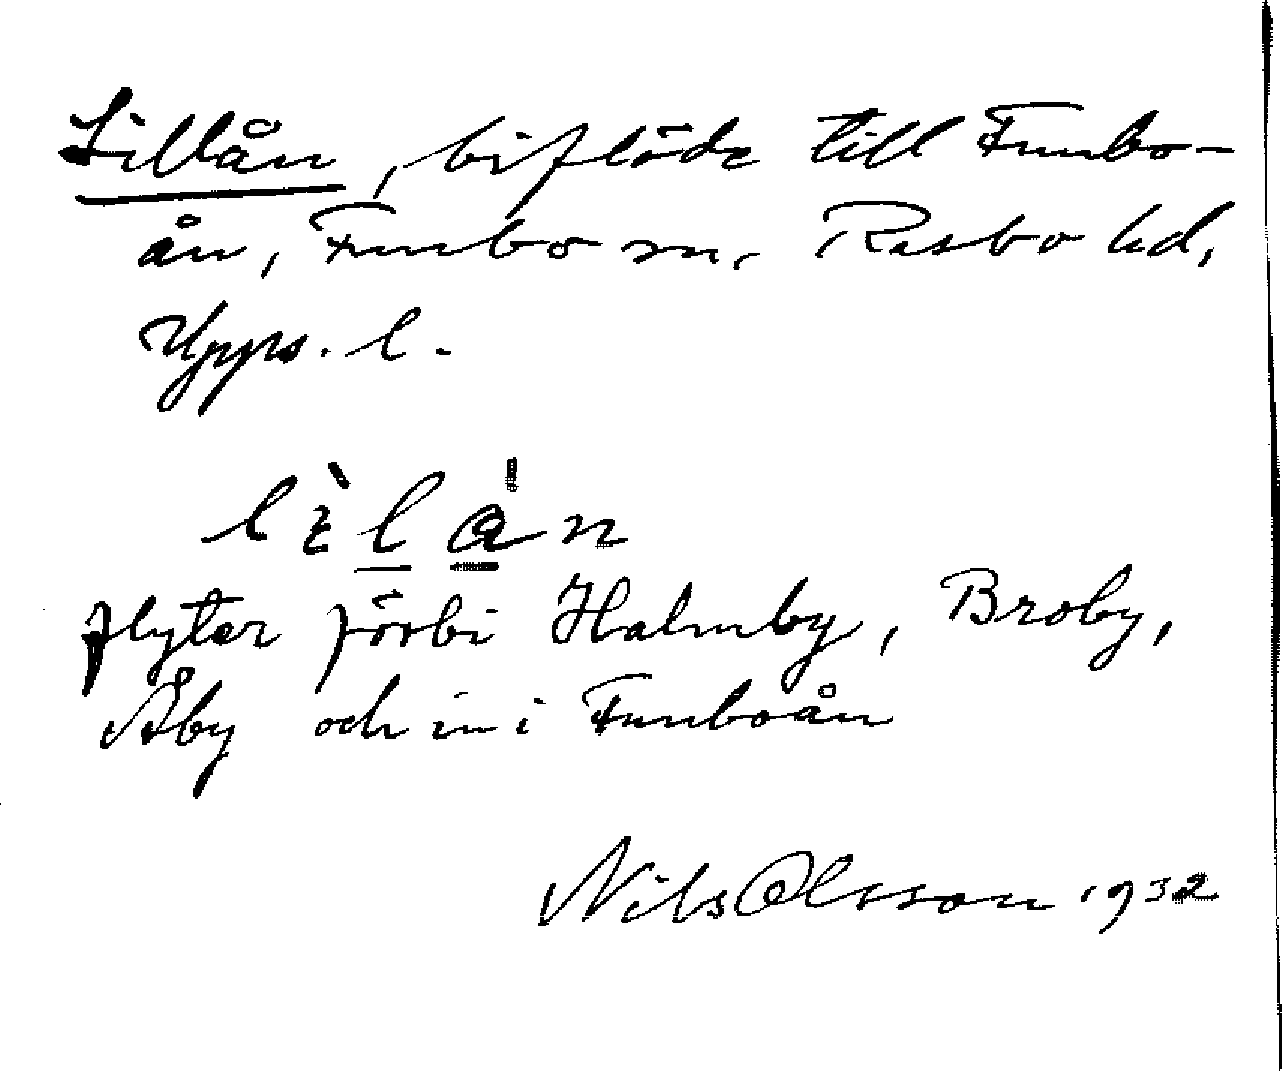 Lillån, biflöde till Funbo-
ån, Funbo sn, Rasbo hd,
Upps. l.
flyter förbi Halmby, Broby,
Åby och in i Funboån
Nils Olsson 1932